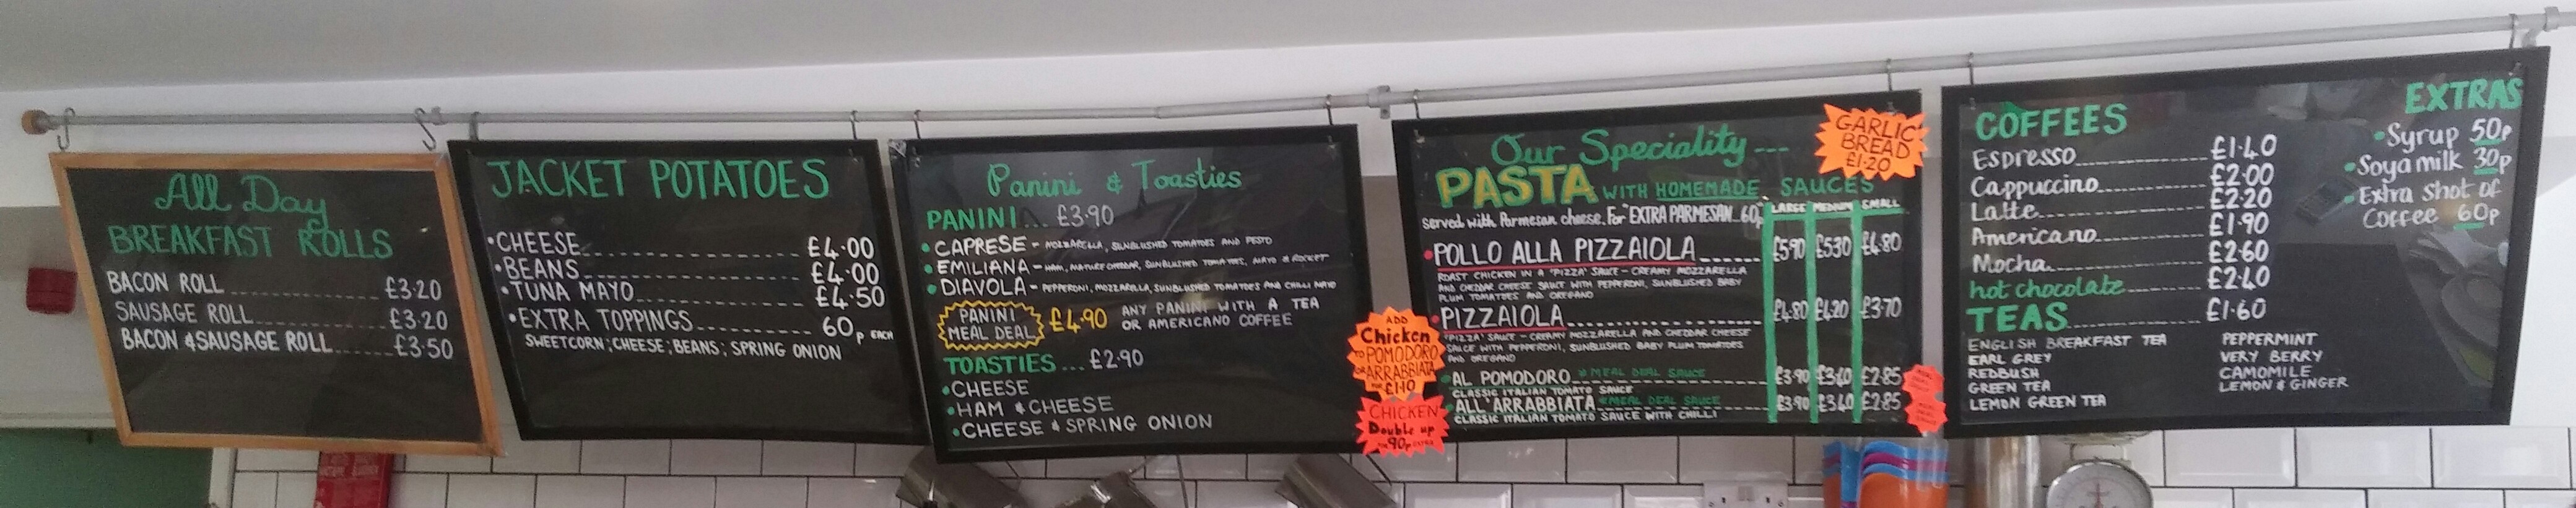 All Day
BREAKFAST ROLLS
BACON ROLL £3·20
SAUSAGE ROLL £3·20
BACON & SAUSAGE ROLL £3·50
JACKET POTATOES
•CHEESE £4·00
•BEANS £4·00
•TUNA MAYO £4·50
•EXTRA TOPPINGS 60p EACH
SWEETCORN; CHEESE; BEANS; SPRING ONION
Panini & Toasties
PANINI... £3·90
• CAPRESE - MOZZARELLA, SUNBLUSHED TOMATOES AND PESTO
• EMILIANA - HAM, MATURE CHEDDAR, SUNBLUSHED TOMATOES, MAYO & ROCKET
• DIAVOLA - PEPPERONI, MOZZARELLA, SUNBLUSHED TOMATOES AND CHILLI MAYO
PANINI
MEAL DEAL
£4·90
ANY PANINI WITH A TEA
OR AMERICANO COFFEE
TOASTIES ... £2·90
•CHEESE
•HAM & CHEESE
•CHEESE & SPRING ONION
ADD
Chicken
TO POMODORO
OR ARRABBIATA
FOR £1·10
CHICKEN
Double up
90p
Our Speciality ---
PASTA WITH HOMEMADE SAUCES
Served with Parmesan cheese. For "EXTRA PARMESAN 60p
LARGE MEDIUM SMALL
GARLIC
BREAD
£1·20
• POLLO ALLA PIZZAIOLA £5·90 £5·30 £4·80
ROAST CHICKEN IN A 'PIZZA' SAUCE - CREAMY MOZZARELLA
AND CHEDAR CHEESE SAUCE WITH PEPPERONI, SUNBLUSHED BABY
PLUM TOMATOES AND OREGANO
• PIZZAIOLA £4·80 £4·20 £3·70
'PIZZA' SAUCE - CREAMY MOZZARELLA AND CHEDAR CHEESE
SAUCE WITH PEPPERONI, SUNBLUSHED BABY PLUM TOMATOES
AND OREGANO
•AL POMODORO *MEAL DEAL SAUCE £3·90 £3·40 £2·85
CLASSIC ITALIAN TOMATO SAUCE
•ALL'ARRABBIATA *MEAL DEAL SAUCE £3·90 £3·40 £2·85
CLASSIC ITALIAN TOMATO SAUCE WITH CHILLI
COFFEES
Espresso £1·40
Cappuccino £2·00
Latte £2·20
Americano £1·90
Mocha £2·60
hot chocolate £2·40
TEAS £1·60
ENGLISH BREAKFAST TEA
EARL GREY
REDBUSH
GREEN TEA
LEMON GREEN TEA
PEPPERMINT
VERY BERRY
CAMOMILE
LEMON & GINGER
EXTRAS
•Syrup 50p
•Soya milk 30p
•Extra shot of
Coffee 60p